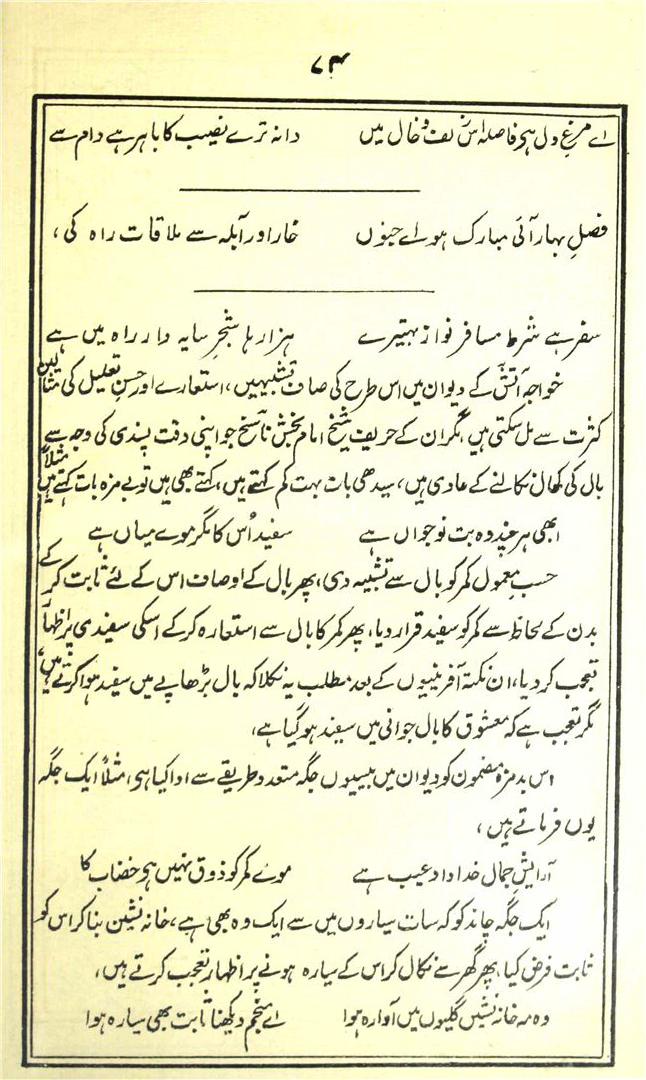 ۷۴
اے مرغِ دل ہی فاصلہ اس زلف و خال میں دانہ ترے نصیب کا باہر ہے دام سے
فصلِ بہار آئی مبارک ہو اے جنوں خار اور آبلہ سے ملاقات راہ کی،
سفر ہے شرط مسافر نواز بہتیرے ہزار ہا شجرِ سایہ دار راہ میں ہے
خواجہ آتش کے دیوان میں اس طرح کی صاف تشبیہیں، استعارے اور حسنِ تعلیل کی مثالیں
کثرت سے مل سکتی ہیں، مگر ان کے حریف شیخ امام بخش ناسخ جو اپنی دقت پسندی کی وجہ سے
بال کی کھال نکالنے کے عادی ہیں، سیدھی بات بہت کم کہتے ہیں، کہتے بھی ہیں تو بے مزہ بات کہتے ہیں مثلاً
ابھی ہر چند وہ بت نوجواں ہے سفید اُس کا مگر موے میاں ہے
حسب معمول کمر کو بال سے تشبیہ دی، پھر بال کے اوصاف اس کے لئے ثابت کر کے
بدن کے لحاظ سے کمر کو سفید قرار دیا، پھر کمر کا بال سے استعارہ کر کے اسکی سفیدی پر اظہار
تعجب کر دیا، ان نکتہ آفرینیوں کے بعد مطلب یہ نکلا کہ بال بڑھاپے میں سفید ہوا کرتے ہیں،
مگر تعجب ہے کہ معشوق کا بال جوانی میں سفید ہو گیا ہے،
اس بدمزہ مضمون کو دیوان میں بیسیوں جگہ متعدد طریقے سے ادا کیا ہی، مثلاً ایک جگہ
یوں فرماتے ہیں،
آرایشِ جمال خداداد عیب ہے موے کمر کو ذوق نہیں ہی خضاب کا
ایک جگہ چاند کو کہ سات سیاروں میں سے ایک وہ بھی ہے، خانہ نشین بنا کر اس کو
ثابت فرض کیا، پھر گھر سے نکال کر اس کے سیارہ ہونے پر اظہار تعجب کرتے ہیں،
وہ مہ خانہ نشیں گلیوں میں آوارہ ہوا اے منجم دیکھنا ثابت بھی سیارہ ہوا